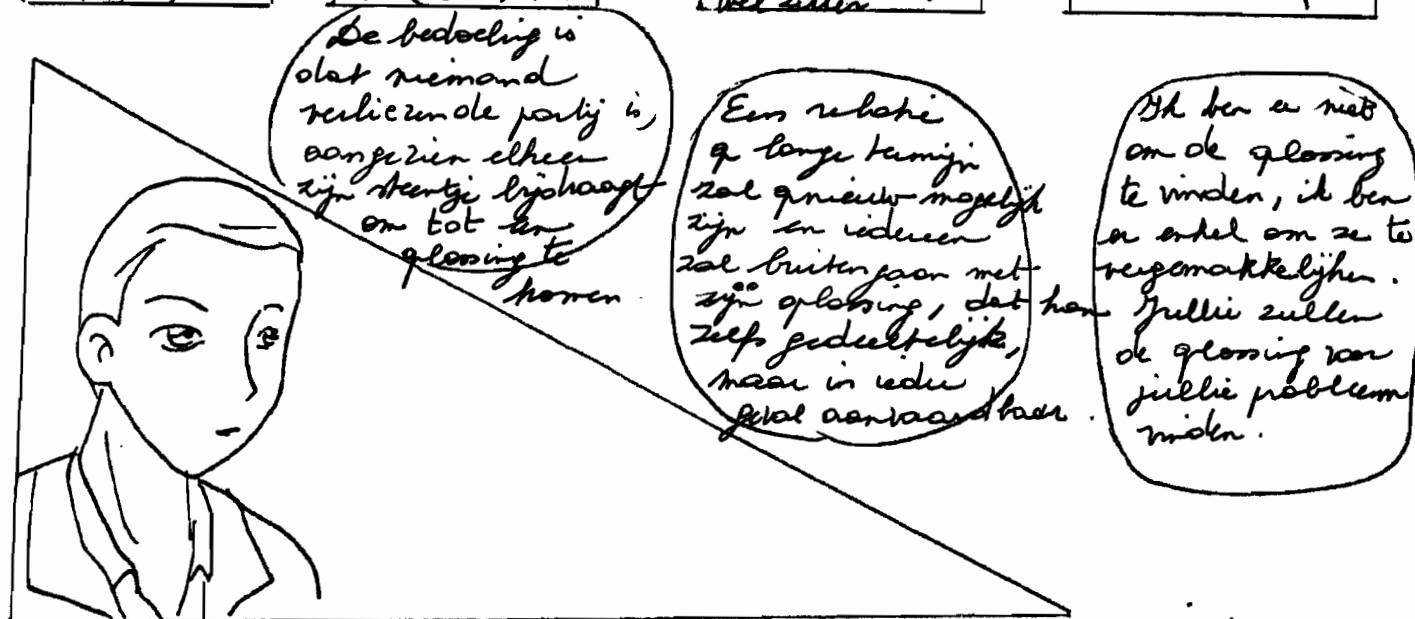 De bedoeling is
dat niemand
verliezende partij is,
aangezien elkeen
zijn steentje bijdraagt
om tot een
oplossing te
komen.
Een relatie
op lange termijn
zal opnieuw mogelijk
zijn en iedereen
zal buitengaan met
zijn oplossing, dat kan
zelfs gedeeltelijk,
maar in ieder
geval aanvaardbaar.
Ik ben er niet
om de oplossing
te vinden, ik ben
er enkel om ze te
vergemakkelijken.
Jullie zullen
de oplossing voor
jullie probleem
vinden.